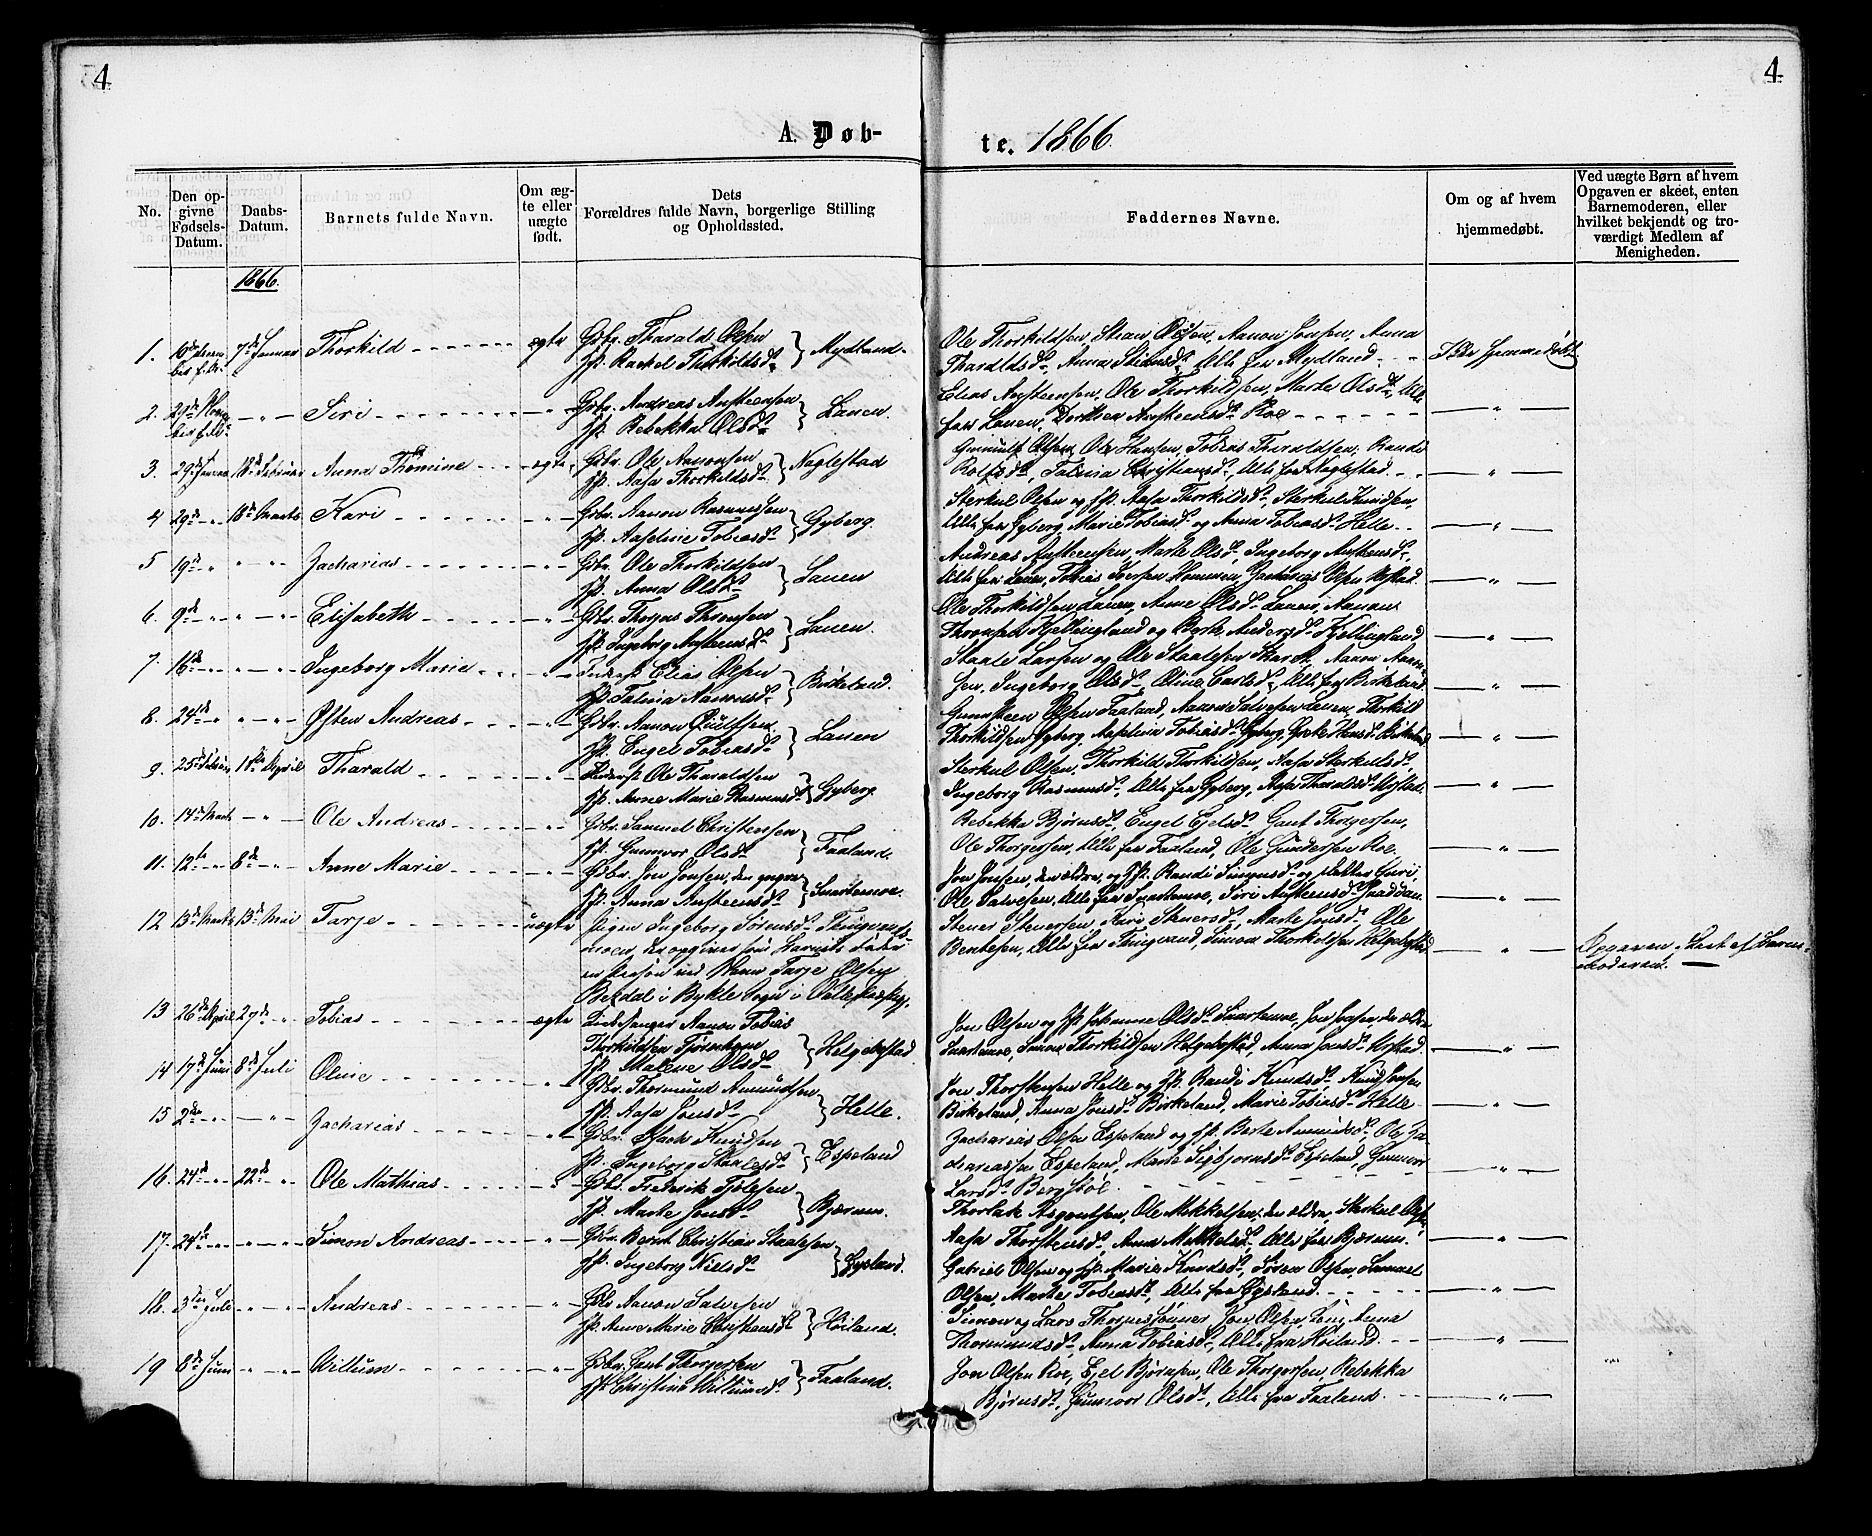 4
4
A. Døb-
te. 1866.
No.
Den op-
givne
Fødsels-
Datum.
Daabs-
Datum.
Barnets fulde Navn.
Om æg-
te eller
uægte
født.
Dets
Forældres fulde Navn, borgerlige Stilling
og Opholdssted.
Faddernes Navne.
Om og af hvem
hjemmedøbt.
Ved uægte Børn af hvem
Opgaven er skeet, enten
Barnemoderen, eller
hvilket bekjendt og tro-
værdigt Medlem af
Menigheden.
1866.
1. 7de Januar Thorkild ægte Gbr. Tharald Olsen
Hst. Rachel Thorkildsd. Mydland.
Ole Thorkildsen, Stean Olsen, Aanon Jonsen, Anna
Tharaldsd., Anna Steansd., Alle fra Mydland
2. Siri Gbr. Andreas Aysteensen
Hst. Rebekka Olsd. Lauen.
Elias Aysteensen, Ole Thorkildsen, Marte Olsd., Alle
fra Lauen, Aysteensd. Roe
3. 29de Januar 18de Februar Anna Thomine ægte Gbr. Ole Aanonsen
Hst. Aasa Thorkildsd. Naglestad
Olsen, Ole Hansen, Tobias Tharaldsen, Randi
Christiansd., Alle fra Naglestad.
4 29de 18de Marts Kari Gbr. Aanon Rasmussen
Hst. Aaseline Tobiasd. Gyberg.
Sterkul Olsen og Hst. Aasa Thorkildsd., Sterkul Knudsen,
Alle fra Gyberg, Marie Tobiasd. og Anna Tobiasd. Helle
5 19de Zacharias Gbr. Ole Thorkildsen
Hst. Anna Olsd. Lauen
Andreas Aysteensen, Marte Olsd., Ingeborg Aysteensd.,
Alle fra Lauen, Tobias Hommen, Zacharias Olsen
6. 9de Elisabeth Gbr. Thorgus Thronsen
Hst. Ingeborg Aysteensd. Lauen.
Ole Thorkildsen Lauen, Anne Olsd. Lauen, Aanon
Thronsen Kjellingland og Berte Andersd. Kjellingland
7. 16de Ingeborg Marie Elias Olsen
Hst. Birkeland.
Staale Larsen og Ole Staalesen Skardt, Aanon Aanon-
sen, Ingeborg Olsd., Oline Carlsd., Alle fra Birkeland
8. 24de Østen Andreas Gbr. Aanon
Hst. Engel Tobiasd. Lauen
Gunsteen Olsen Faaland, Aanon Salvesen Lauen, Thorkild
Thorkildsen Gyberg, Aaselina Tobiasd. Gyberg, Hansd. Birkeland
9. 25de Februar April Tharald Ole Tharaldsen
Hst. Anne Marie Rasmusd. Gyberg.
Sterkul Olsen, Thorkild Thorkildsen, Aasa Sterkulsd.,
Ingeborg Rasmusd., Alle fra Gyberg, Aasa Tharaldsd.
10. 14de Marts Ole Andreas Gbr. Samuel Christensen
Hst. Gunnvor Olsd. Faaland.
Rebekka Bjørnsd., Engel Ejelsd., Gaut Thorgersen,
Ole Thorgersen, Alle fra Faaland, Ole Gundersen Roe.
11. 12te 8de Anne Marie Gbr. Jon Jonsen, den yngre
Hst. Anna Aysteensd. Snartemoe.
Jon Jonsen, den ældre, og Hst. Randi Simensd. og Datter Guri,
Ole Salvesen, Alle fra Snartemoe, Siri Aysteensd.
12 13de Marts 13de Mai Tarje uægte Pigen Ingeborg Sørensd. Tingvats-
moen,
Tarje Olsen
i Bykle Sogn i
Stener Stenersen, Kari Stenersd., Marte Jonsd., Ole
Bentesen, Alle fra Tingvand, Simon Thorkildsen Helgebostad
Opgaven skeet af Barne-
moderen.
13 26de April 27de Tobias ægte Aanon Tobias
Thorkildsen
Hst. Malene Olsd. Helgebostad
Jon Olsen og Hst. Johanne Olsd. Snartemoe, Jon Jonsen, den ældre
Snartemoe, Simon Thorkildsen Helgebostad, Anna Jonsd.
14 17de Juni 8de Juli Oline Gbr. Thormund Aanundsen
Hst. Aasa Jonsd. Helle.
Jon Thorstensen Helle og Hst. Randi Knudsd., Knud Jonsen
Birkeland, Anna Jonsd. Birkeland, Marie Tobiasd. Helle
15 2den Zacharias Gbr. Isach Knudsen
Hst. Ingeborg Staalesd. Espeland
Zacharias Olsen Espeland og Hst. Berte Aanundsd., Ole Za-
chariassen Espeland, Marte Sigbjørnsd. Espeland, Gunnvor
Larsd. Bergstøl
16. 24de 22de Ole Mathias Gbr. Frederik
Hst. Marte Jonsd. Bjærum.
Thorlak Asgautsen, Ole Mikkelsen, den ældre, Sterkul Olsen,
Aasa Thorstensd., Anna Mikkelsd., Alle fra Bjærum.
17. 24de Simon Andreas Gbr. Bernt Christian Staalesen
Hst. Ingeborg Nielsd. Øysland.
Gabriel Olsen og Hst. Marie Knudsd., Søren Olsen, Samuel
Olsen, Marte Tobiasd., Alle fra Øysland.
18. 3die Juli Andreas Gbr. Aanon Salvesen
Hst. Anne Marie Christensd. Høiland.
Simon og Lars Thormesønner, Jon Olsen, Anna
Thormundsd., Anna Tobiasd., Alle fra Høiland.
19 8de Juni Villum Gbr. Gaut Thorgersen
Hst. Christine Villumsd. Faaland.
Jon Olsen Roe, Ejel Bjørnsen, Ole Thorgersen, Rebekka
Bjørnsd., Gunnvor Olsd., Alle fra Faaland.